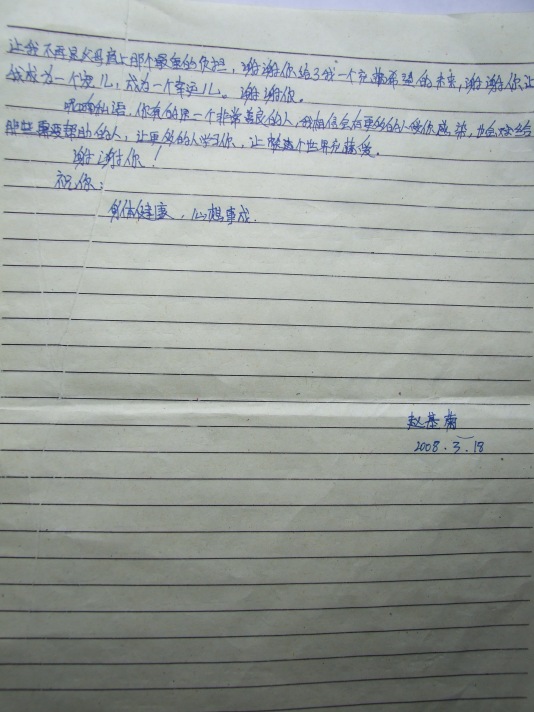 让我不再是父母肩上那个最重的负担，谢谢你给了我一个充满希望的未来，谢谢你让
我成为一个宠儿，成为一个幸运儿。谢谢你。
喃喃私语，你真的是一个非常善良的人，我相信会有更多的人受你感染，也会去给
那些需要帮助的人，让更多的人学习你，让整个世界充满爱。
谢谢你！
祝你：
身体健康，心想事成.
赵基南
2008.3.18